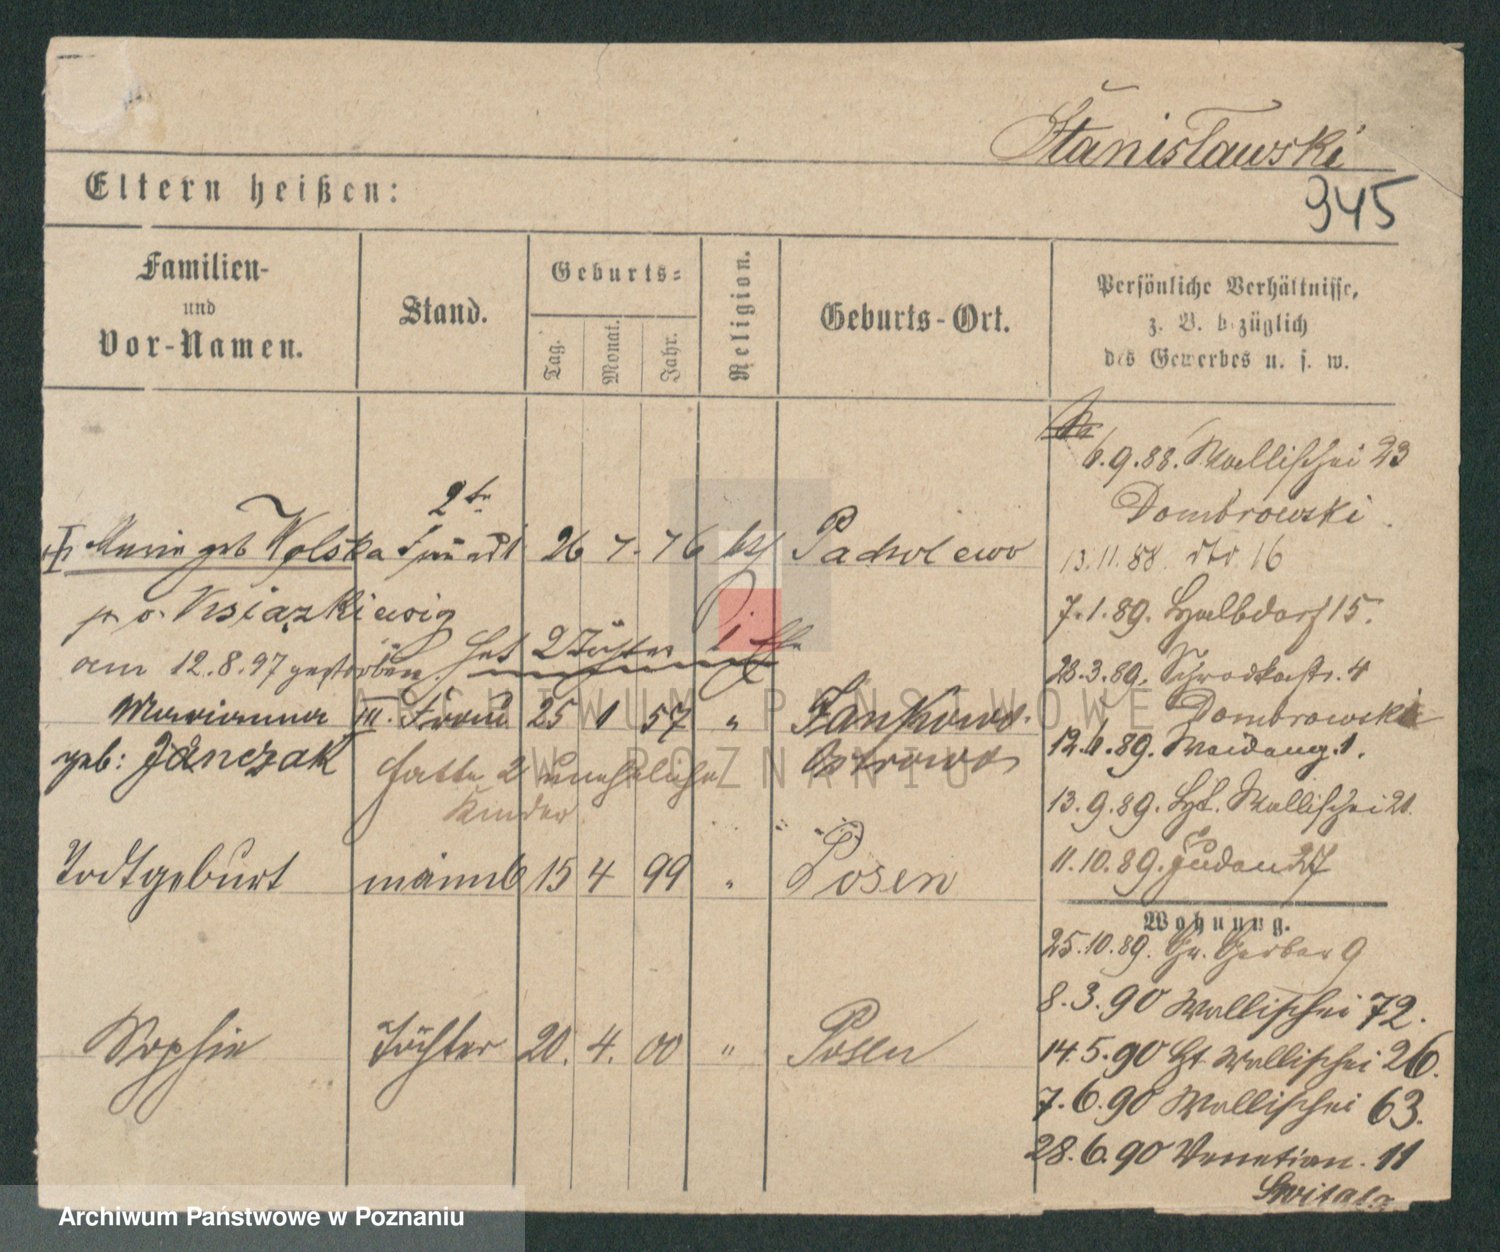 Stanisławski
945
Eltern heißen:
Familien- und Vor-Namen.
Stand.
Geburts=
Tag.
Monat.
Jahr.
Religion.
Geburts-Ort.
Persönliche Verhältnisse, z. B. bezüglich des Gewerbes u. s. w.
6.9.88. Wallischei 23
Dombrowski
2te
Marie geb Wolska Frau 26 7. 76 Pacholewo
13.11.88. dto 16
7.1.89. Halbdorf 15.
am 12.8.97 gestorben. hat 2 Töchter
28.3.89. Schrodkastr. 4
Dombrowski
Marianna III. Frau 25 1 57 "
12.4.89. Waidang. 1.
geb: Janczak hatte 2 uneheliche Ostrowo
Kinder.
13.9.89. Ht. Wallischei 21.
11.10.89. Juden 27
Todtgeburt männl 15 4 99 " Posen
Wohnung.
25.10.89. Gr. Gerber 9
8.3.90 Wallischei 72.
Sophie Tochter 20. 4. 00 " Posen
14.5.90 Ht Wallischei 26.
7.6.90 Wallischei 63.
28.6.90 Venetian. 11
Switala
ARCHIWUM PAŃSTWOWE
W POZNANIU
Archiwum Państwowe w Poznaniu